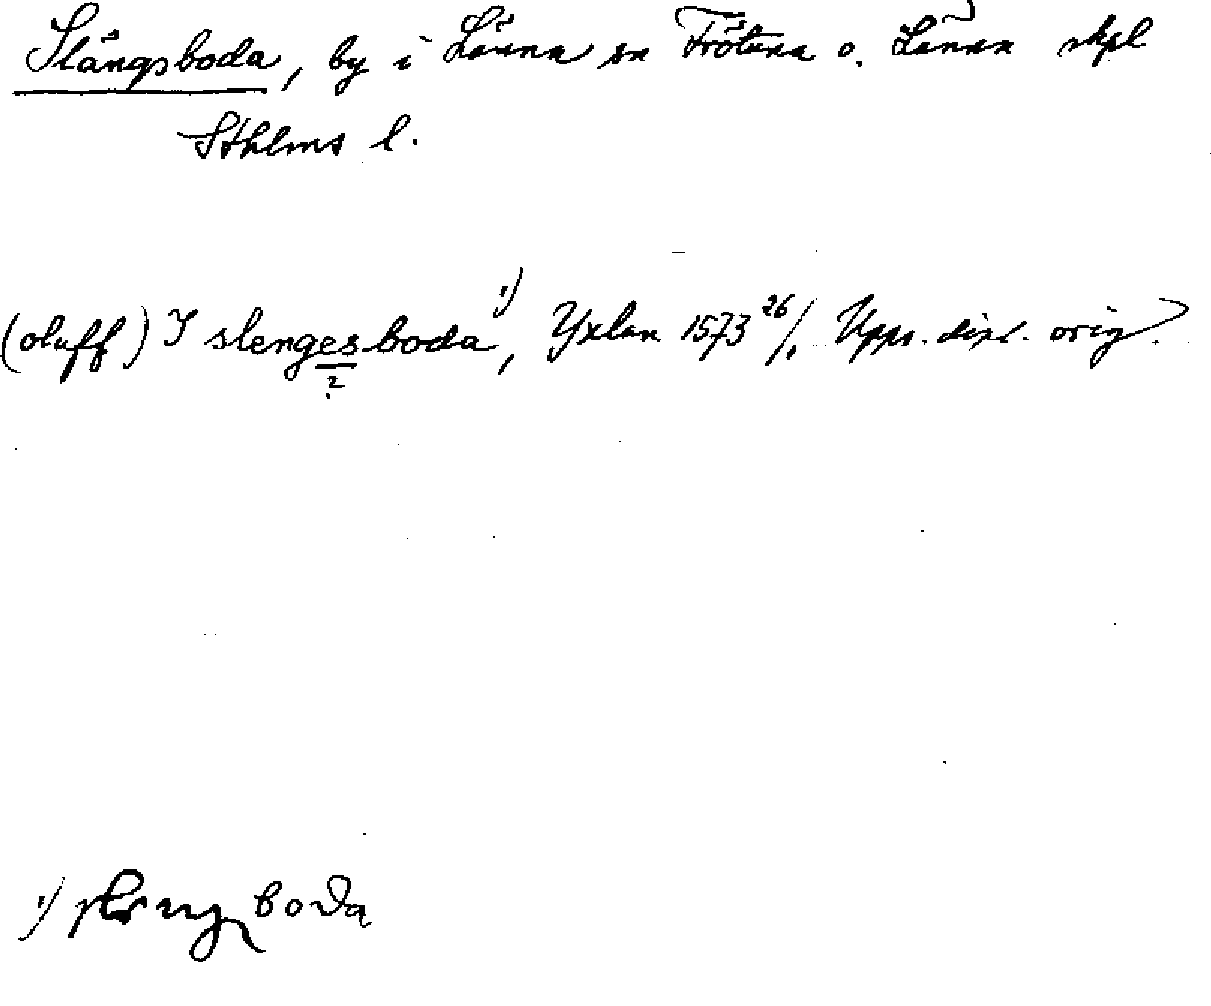 Slängsboda, by i Länna sn Frötuna o. Länna skpl
Sthlms l.
(oluff) I slengesboda ¹), Yxlan 1573 26/1. Upps. dipl. orig.
?
¹) slengboda